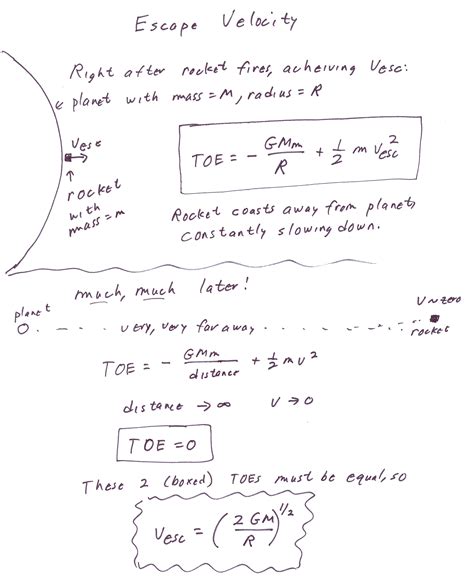 Escape Velocity
Right after rocket fires, acheiving Vesc:
planet with mass = M, radius = R
Vesc
rocket
with
mass = m
TOE = - GMm/R + 1/2 m Vesc^2
Rocket coasts away from planet,
constantly slowing down.
much, much later!
planet
very, very far away
V~zero
rocket
TOE = - GMm/distance + 1/2 m v^2
distance → ∞ V → 0
TOE = 0
These 2 (boxed) TOEs must be equal, so
Vesc = (2GM/R)^1/2